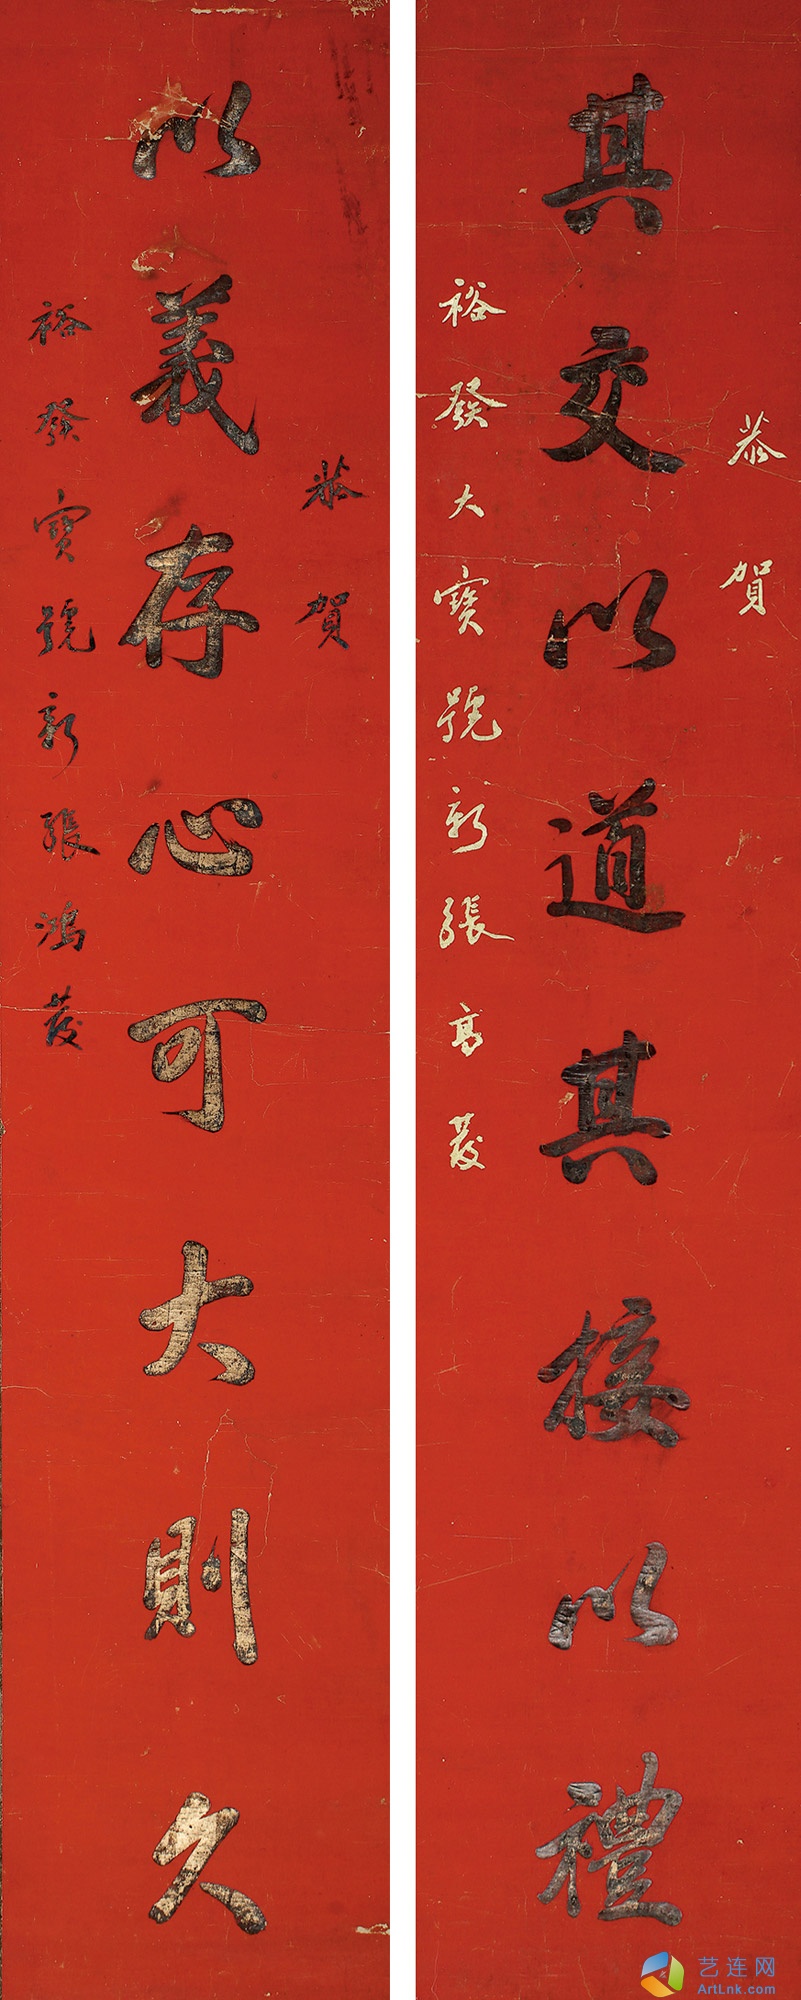 恭賀
其交以道其接以禮
裕發大寶號新張高發
恭賀
以義存心可大則久
裕發寶號新張鴻發
艺连网
ArtLnk.com